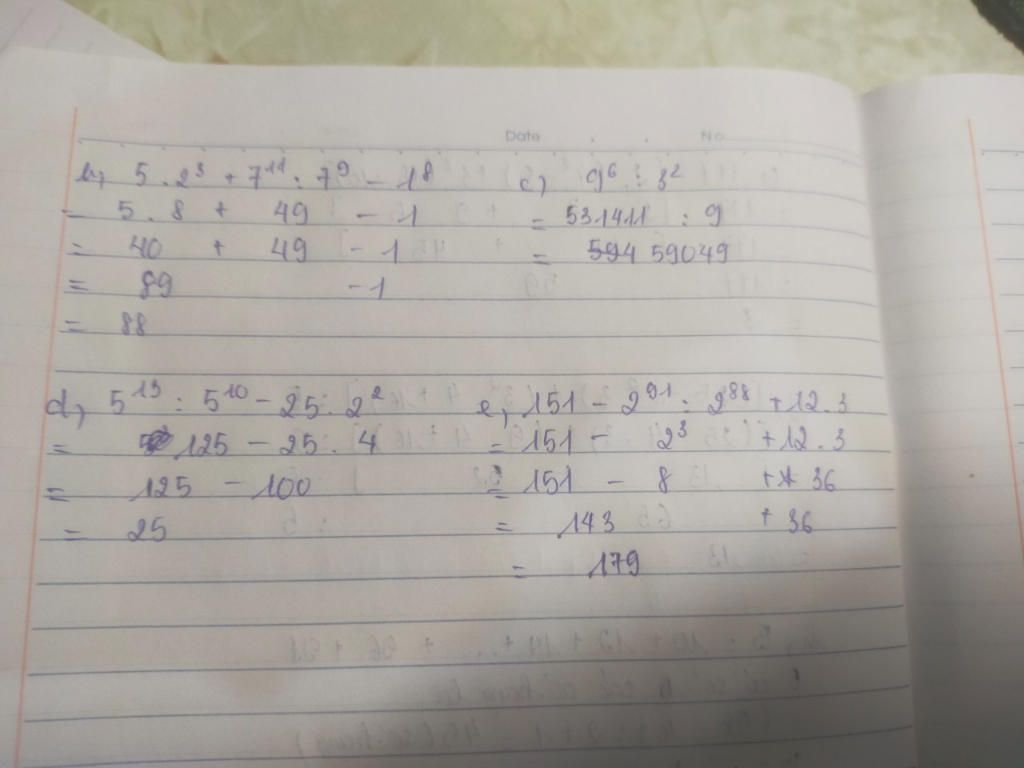 Date No
b, 5 . 2³ + 7¹¹ : 7⁹ - 1⁸
= 5 . 8 + 49 - 1
= 40 + 49 - 1
= 89 - 1
= 88
c, 9⁶ : 3²
= 531411 : 9
= 59049
d, 5¹³ : 5¹⁰ - 25 . 2²
= 125 - 25 . 4
= 125 - 100
= 25
e, 151 - 2⁹¹ : 2⁸⁸ + 12 . 3
= 151 - 2³ + 12 . 3
= 151 - 8 + 36
= 143 + 36
= 179